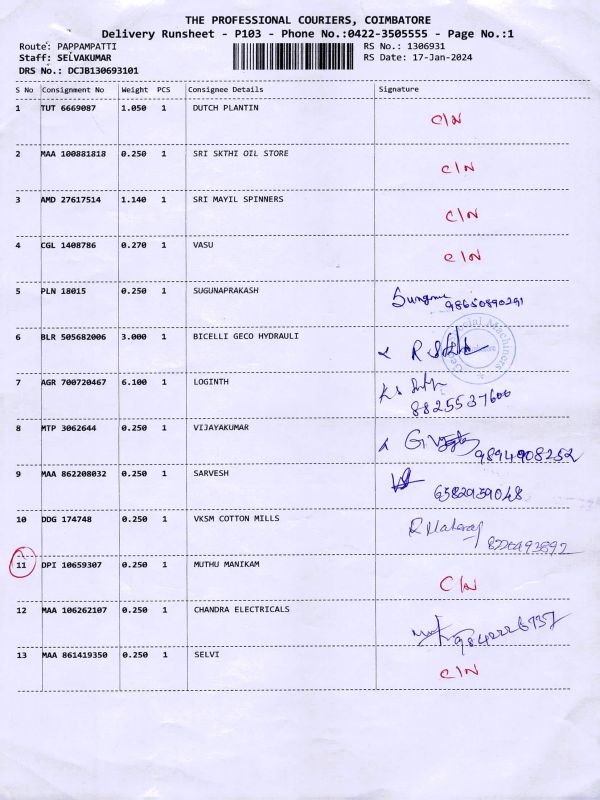 THE PROFESSIONAL COURIERS, COIMBATORE
Delivery Runsheet - P103 - Phone No.:0422-3505555 - Page No.:1
Route: PAPPAMPATTI RS No.: 1306931
Staff: SELVAKUMAR RS Date: 17-Jan-2024
DRS No.: DCJB130693101
S No Consignment No Weight PCS Consignee Details Signature
1 TUT 6669087 1.050 1 DUTCH PLANTIN C/N
2 MAA 100881818 0.250 1 SRI SKTHI OIL STORE C/N
3 AMD 27617514 1.140 1 SRI MAYIL SPINNERS C/N
4 CGL 1408786 0.270 1 VASU C/N
5 PLN 18015 0.250 1 SUGUNAPRAKASH
98650890291
6 BLR 505682006 3.000 1 BICELLI GECO HYDRAULI
7 AGR 700720467 6.100 1 LOGINTH
8825537600
8 MTP 3062644 0.250 1 VIJAYAKUMAR
9894908252
9 MAA 862208032 0.250 1 SARVESH
6382939048
10 DDG 174748 0.250 1 VKSM COTTON MILLS
11 DPI 10659307 0.250 1 MUTHU MANIKAM C/N
12 MAA 106262107 0.250 1 CHANDRA ELECTRICALS
13 MAA 861419350 0.250 1 SELVI C/N